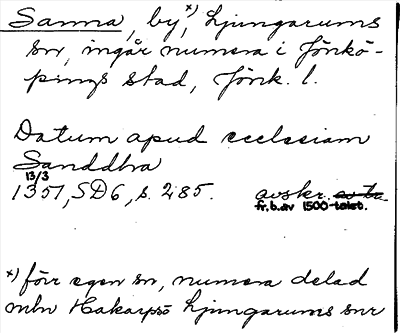 Sanna, by, x) Ljungarums
sn, ingår numera i Jönkö-
pings stad, Jönk. l.
Datum apud ecclesiam
Sanddhra
13/3
1357, SD6, s. 285. avskr.
fr. b. av 1500-talet.
x) förr egen sn, numera delad
mln Hakarps o Ljungarums snr